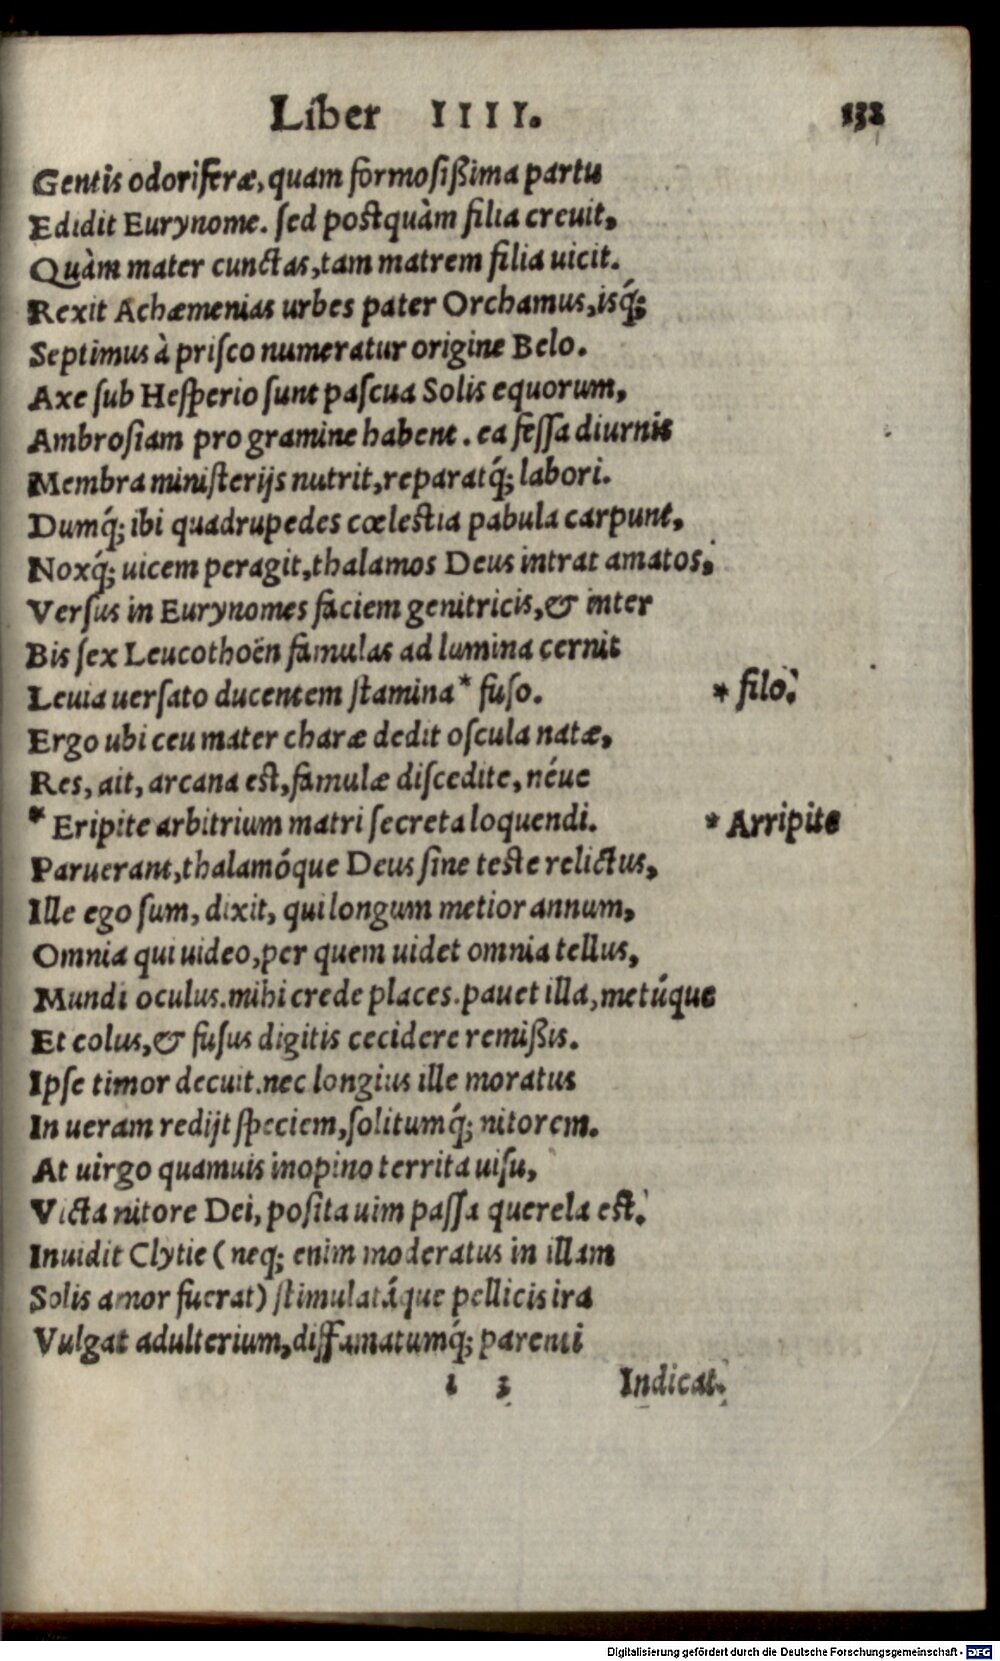 Liber IIII. 132
Gentis odoriferæ, quam formosißima partu
Edidit Eurynome. sed postquàm filia creuit,
Quàm mater cunctas, tam matrem filia uicit.
Rexit Achæmenias urbes pater Orchamus, isq́;
Septimus à prisco numeratur origine Belo.
Axe sub Hesperio sunt pascua Solis equorum,
Ambrosiam pro gramine habent. ea fessa diurnis
Membra ministerijs nutrit, reparatq́; labori.
Dumq́; ibi quadrupedes cœlestia pabula carpunt,
Noxq́; uicem peragit, thalamos Deus intrat amatos,
Versus in Eurynomes faciem genitricis, & inter
Bis sex Leucothoën famulas ad lumina cernit
Leuia uersato ducentem stamina* fuso. * filo.
Ergo ubi ceu mater charæ dedit oscula natæ,
Res, ait, arcana est, famulæ discedite, néue
* Eripite arbitrium matri secreta loquendi. * Arripite
Paruerant, thalamóque Deus sine teste relictus,
Ille ego sum, dixit, qui longum metior annum,
Omnia qui uideo, per quem uidet omnia tellus,
Mundi oculus. mihi crede places. pauet illa, metúque
Et colus, & fusus digitis cecidere remißis.
Ipse timor decuit. nec longius ille moratus
In ueram redijt speciem, solitumq́; nitorem.
At uirgo quamuis inopino territa uisu,
Victa nitore Dei, posita uim passa querela est.
Inuidit Clytie (neq; enim moderatus in illam
Solis amor fuerat) stimulatáque pellicis ira
Vulgat adulterium, diffamatumq́; parenti
Indicat.
Digitalisierung gefördert durch die Deutsche Forschungsgemeinschaft - DFG